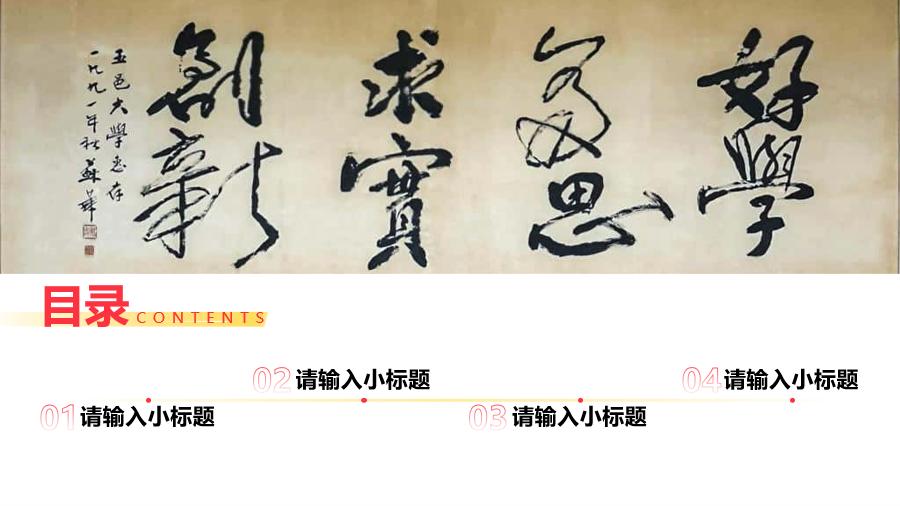 好學
多思
求實
創新
五邑大學惠存
一九九一年秋 蘇華
目录 CONTENTS
01 请输入小标题
02 请输入小标题
03 请输入小标题
04 请输入小标题